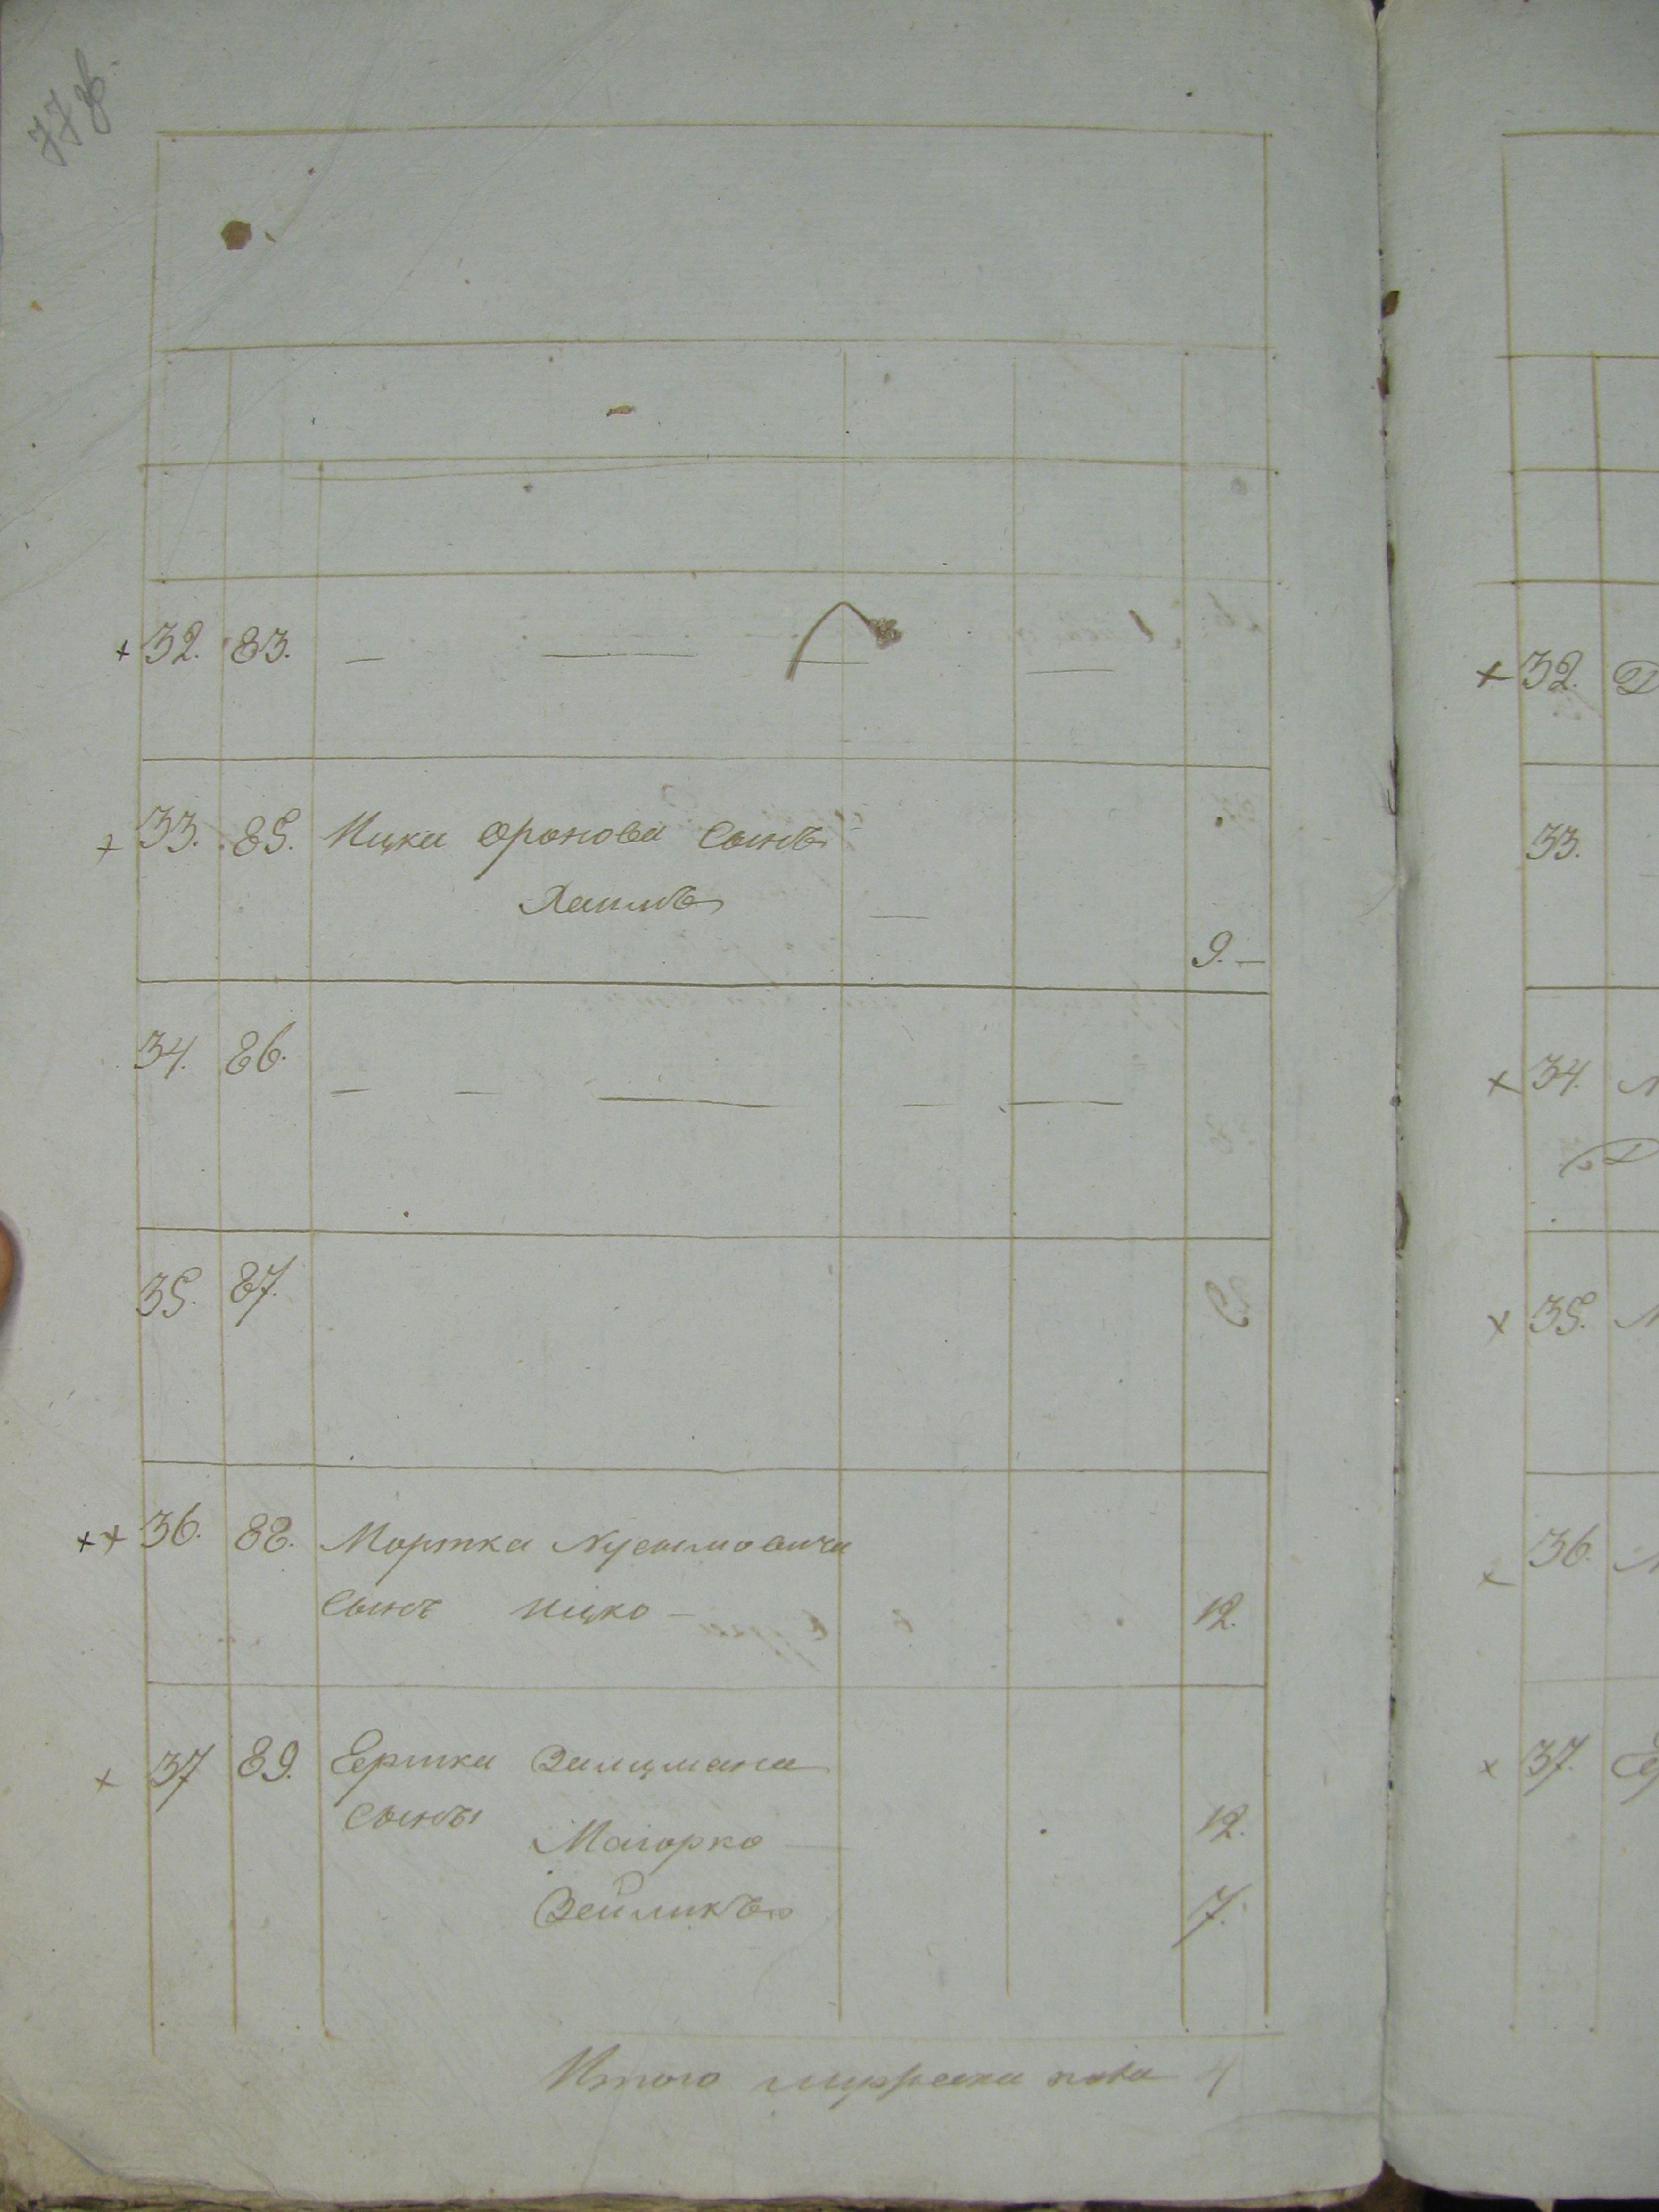 + 32. 83. — — — —
+ 33. 85. Ицка Оронова сынъ
Хаимъ — 9. —
34. 86. — — — — —
35. 87.
++ 36. 88. Мортка Нусымовича
сынъ Ицко — 12.
+ 37 89. Ершка Залцмана
сыны
Маіорко 12.
Зейликъ 7.
Итого мужеска пола 4
+ 32.
33.
+ 34.
+ 35.
+ 36.
+ 37.